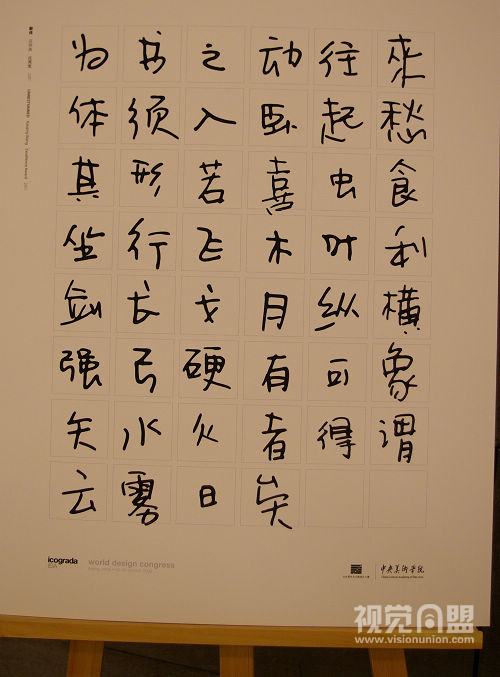 为书之动往來
体须入卧起愁
其形若喜虫食
坐行飞木叶利
剑长戈月纵横
强弓硬有可象
矢水火者得谓
云雾日矣
icograda
world design congress
中央美術學院
视觉同盟
www.visionunion.com